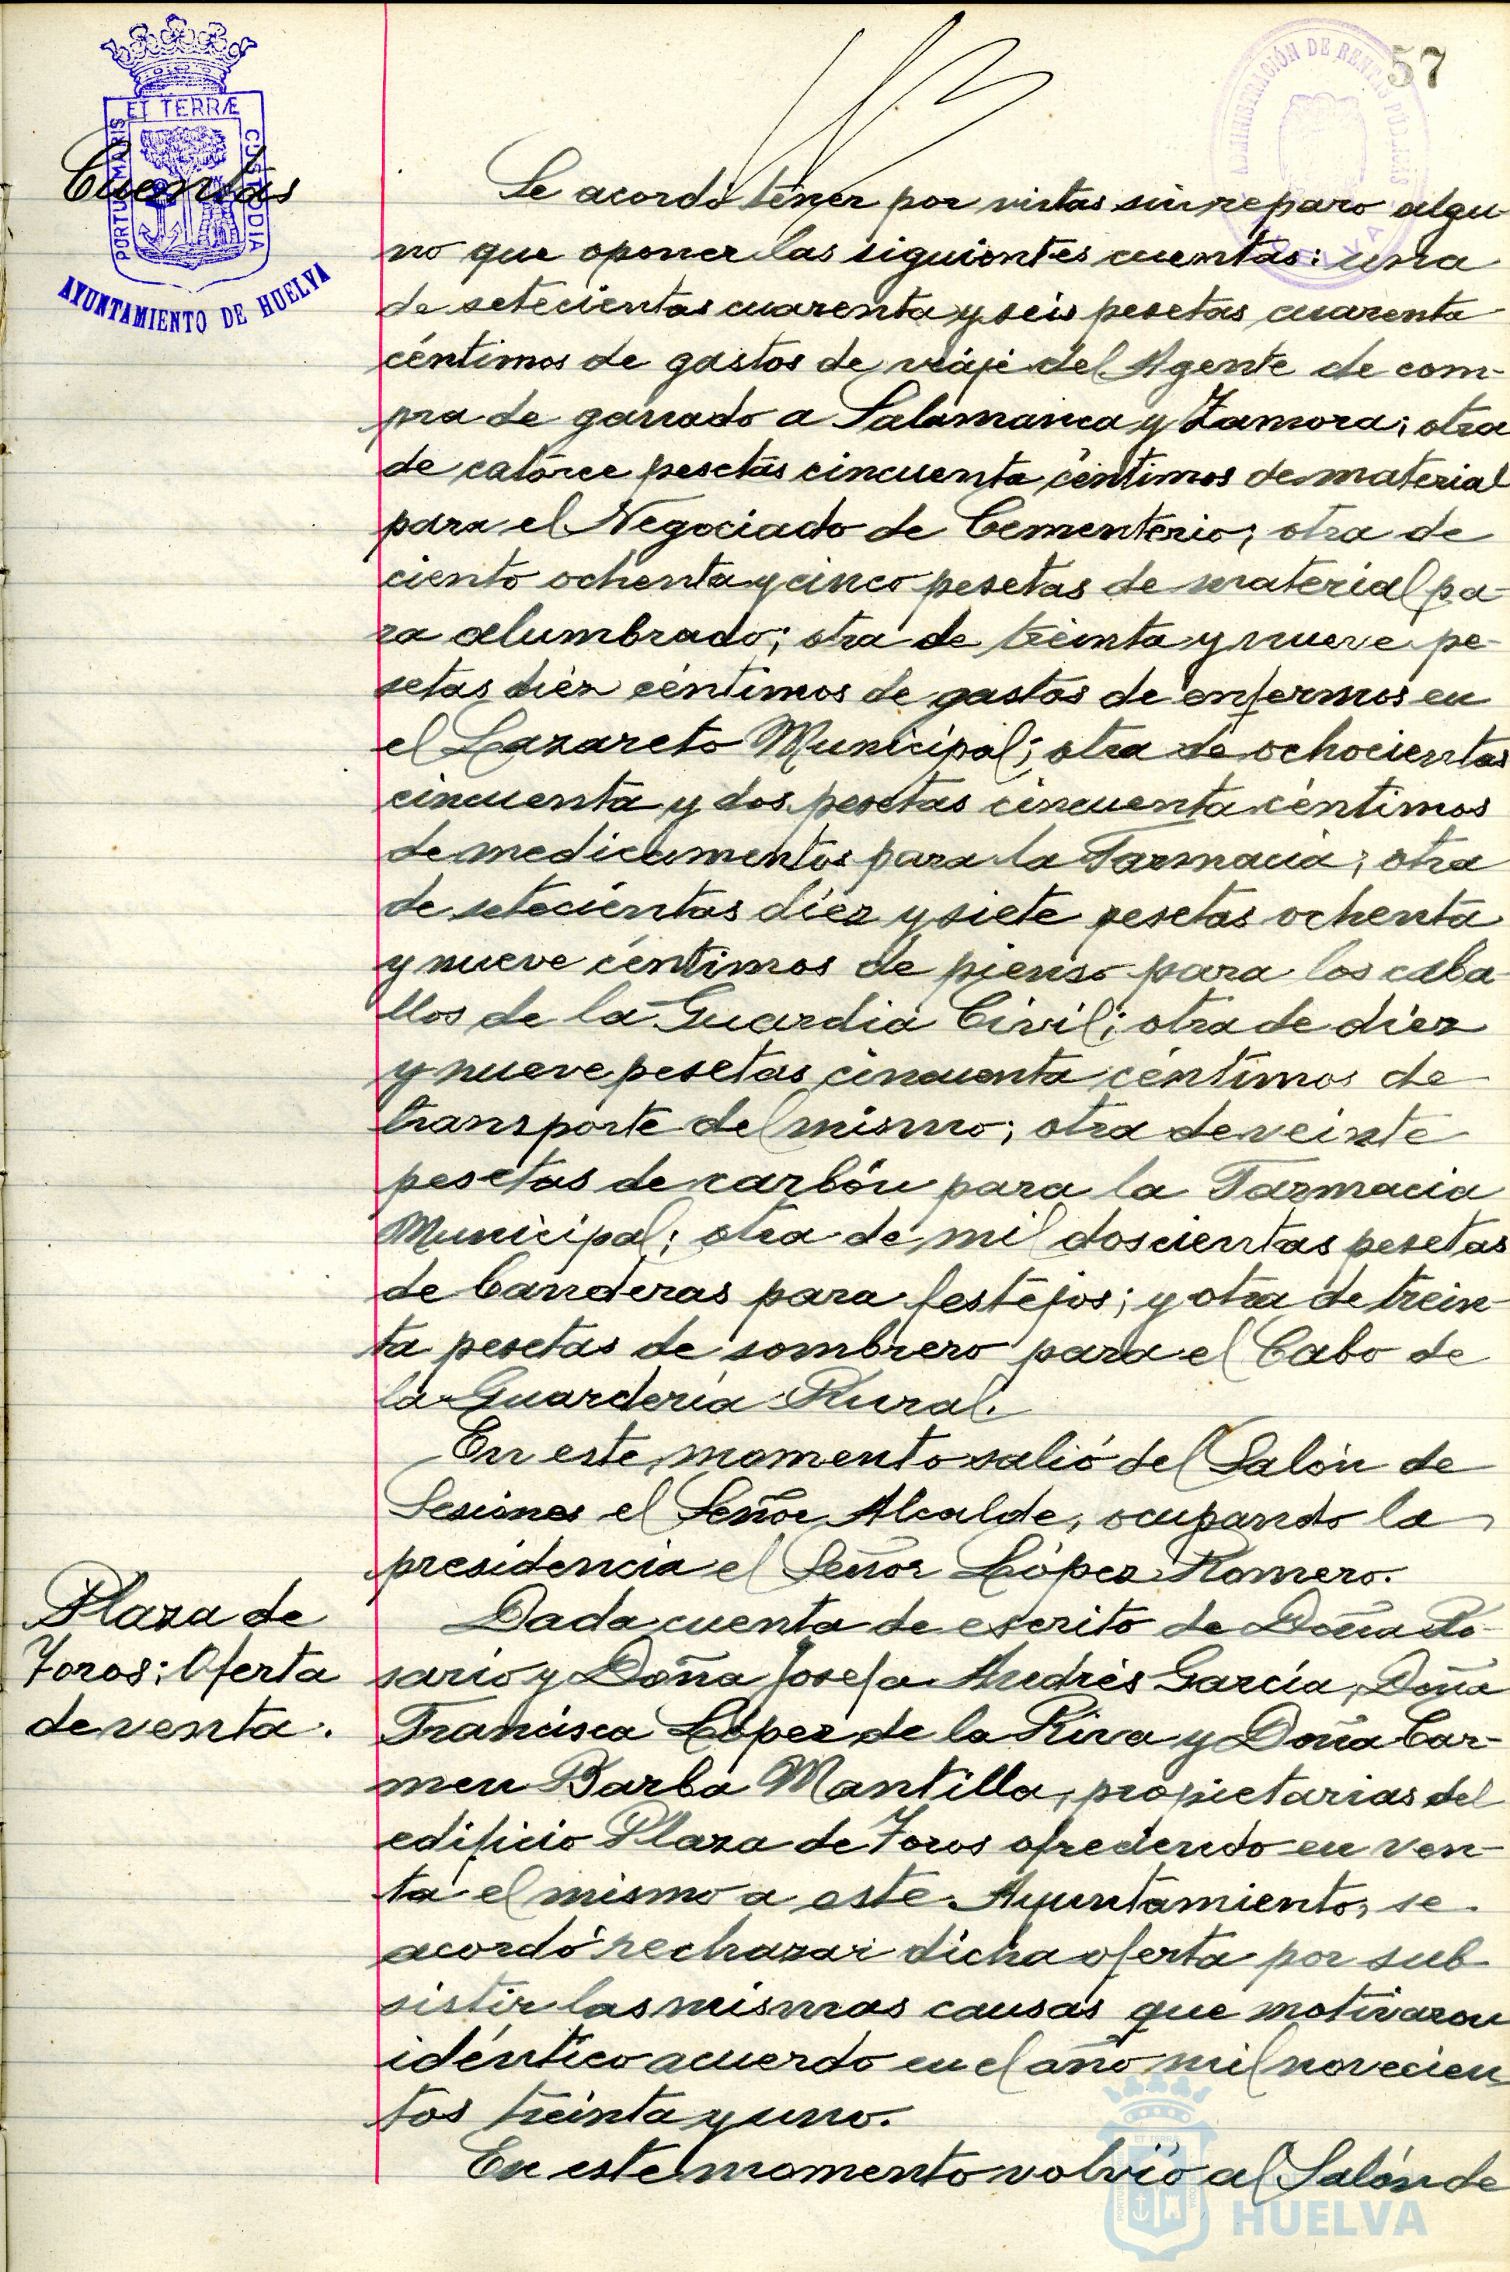 57
ADMINISTRACIÓN DE RENTAS PÚBLICAS
ET TERRÆ
PORTUS MARIS
CUSTODIA
AYUNTAMIENTO DE HUELVA
Cuentas
Se acordó tener por vistas sin reparo algu-
no que oponer las siguientes cuentas: una
de setecientas cuarenta y seis pesetas cuarenta
céntimos de gastos de viaje del Agente de com-
pra de ganado a Salamanca y Zamora; otra
de catorce pesetas cincuenta céntimos de material
para el Negociado de Cementerio; otra de
ciento ochenta y cinco pesetas de material pa-
ra alumbrado; otra de treinta y nueve pe-
setas diez céntimos de gastos de enfermos en
el Lazareto Municipal; otra de ochocientas
cincuenta y dos pesetas cincuenta céntimos
de medicamentos para la Farmacia; otra
de setecientas diez y siete pesetas ochenta
y nueve céntimos de pienso para los caba-
llos de la Guardia Civil; otra de diez
y nueve pesetas cincuenta céntimos de
transporte del mismo; otra de veinte
pesetas de carbón para la Farmacia
Municipal; otra de mil doscientas pesetas
de banderas para festejos; y otra de trein-
ta pesetas de sombrero para el Cabo de
la Guardería Rural.
En este momento salió del Salón de
Sesiones el Señor Alcalde, ocupando la
presidencia el Señor López Romero.
Plaza de
Toros: Oferta
de venta.
Dada cuenta de escrito de Doña Ro-
sario y Doña Josefa Andrés García, Doña
Francisca López de la Riva y Doña Car-
men Barba Mantilla, propietarias del
edificio Plaza de Toros ofreciendo en ven-
ta el mismo a este Ayuntamiento, se
acordó rechazar dicha oferta por sub-
sistir las mismas causas que motivaron
idéntico acuerdo en el año mil novecien-
tos treinta y uno.
En este momento volvió al Salón de
HUELVA